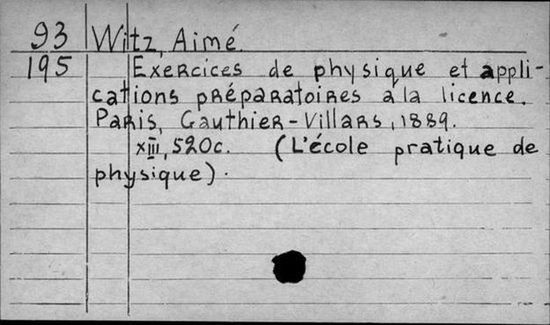 93 Witz, Aimé.
195 Exercices de physique et appli-
cations préparatoires à la licence.
Paris, Gauthier-Villars, 1889.
XIII, 520c. (L'école pratique de
physique).